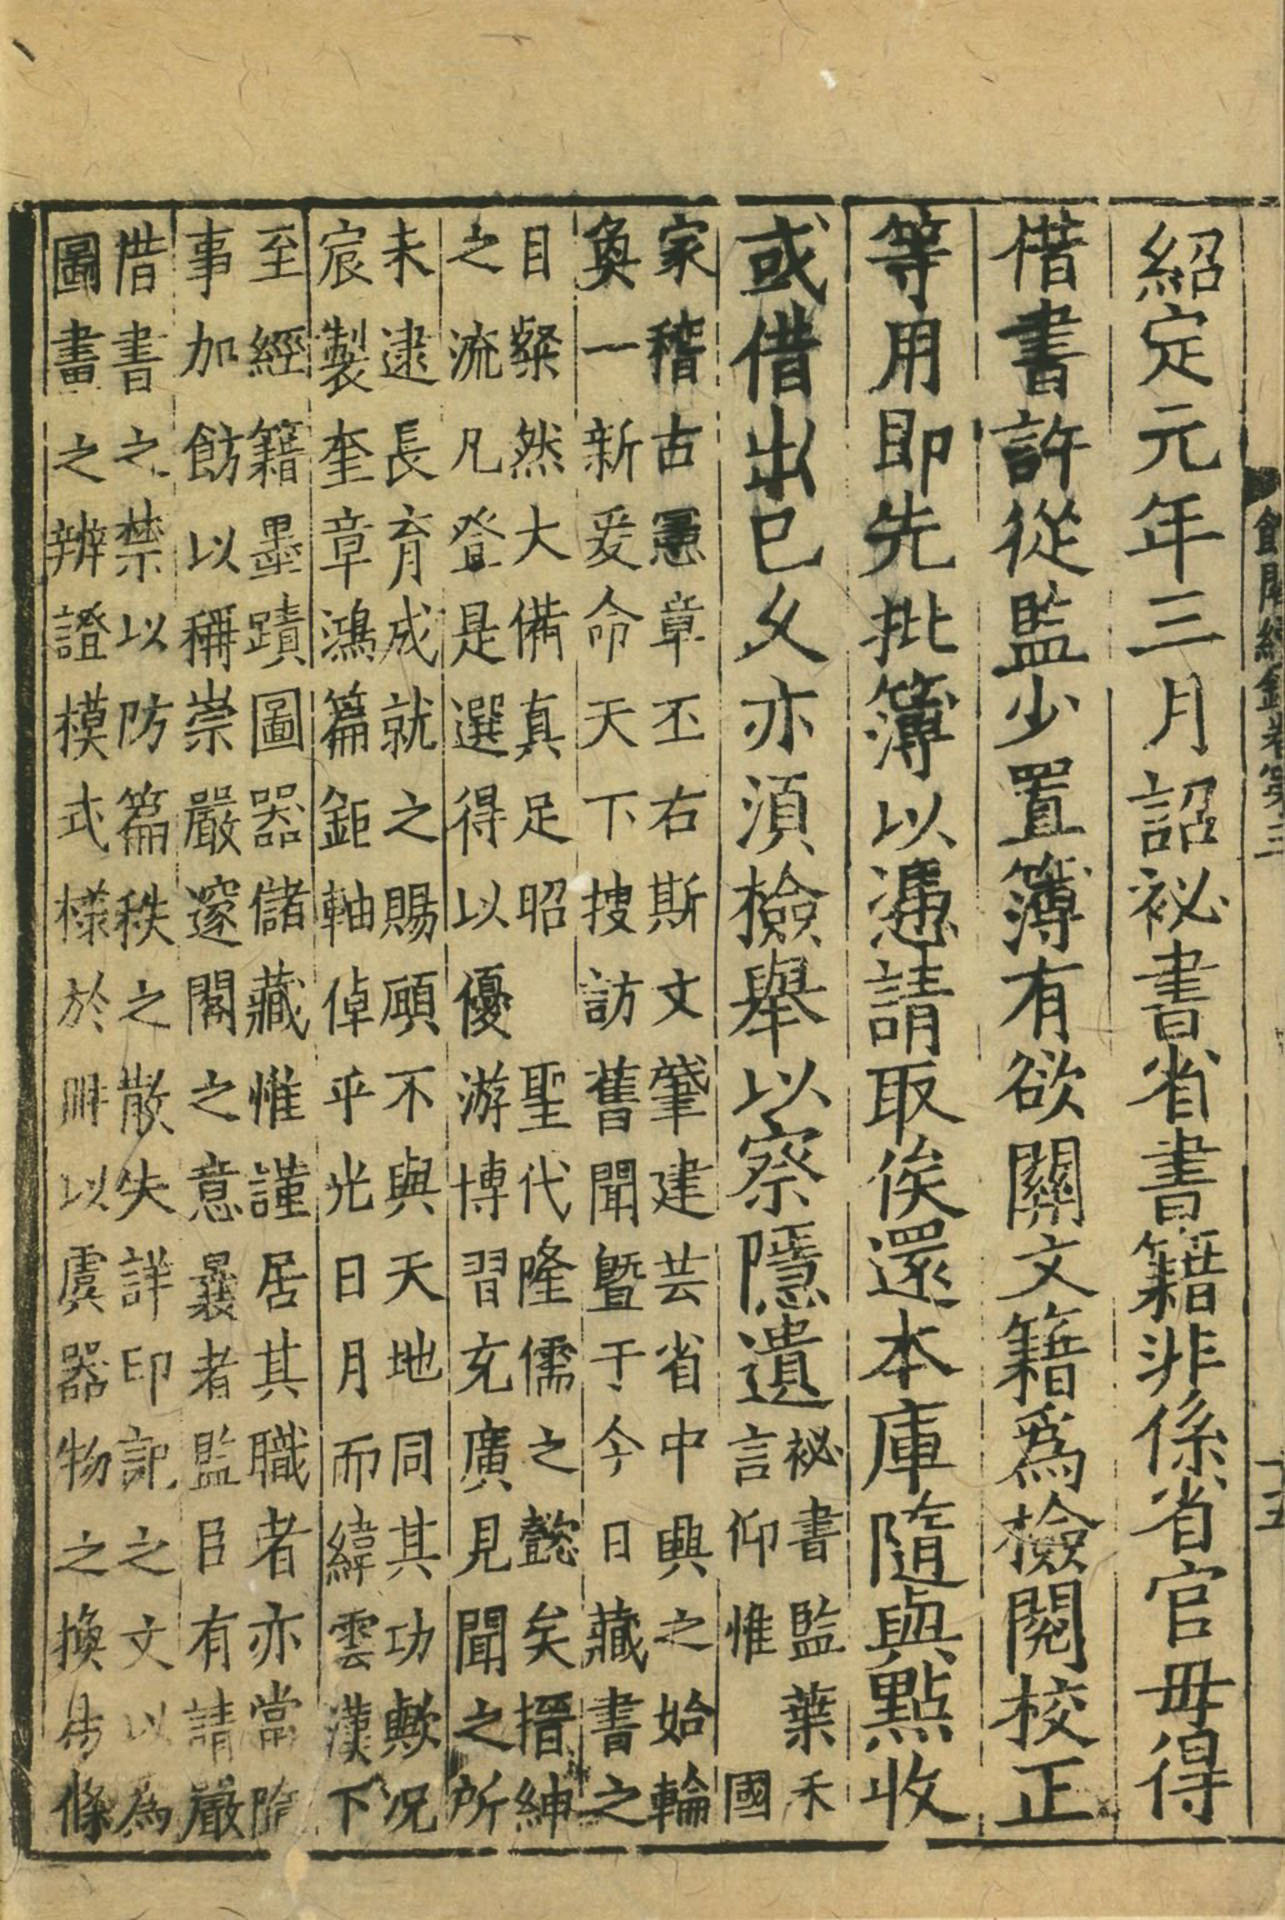 館閣續錄卷第三
十五
紹定元年三月詔祕書省書籍非係省官毋得
借書許從監少置簿有欲關文籍爲檢閱校正
等用即先批簿以憑請取俟還本庫隨與點收
或借出已久亦須檢舉以察隱遺
祕書監葉禾
言仰惟　國
家稽古憲章丕右斯文肇建芸省中興之始輪
奐一新爰命天下搜訪舊聞曁于今日藏書之
目粲然大備真足昭　聖代隆儒之懿矣搢紳
之流凡登是選得以優游博習充廣見聞之所
未逮長育成就之賜顧不與天地同其功歟況
宸製奎章鴻篇鉅軸倬乎光日月而緯雲漢下
至經籍墨蹟圖器儲藏惟謹居其職者亦當隨
事加飭以稱崇嚴邃閣之意曩者監臣有請嚴
借書之禁以防篇秩之散失詳印記之文以為
圖畫之辨證模式樣於冊以虞器物之換條